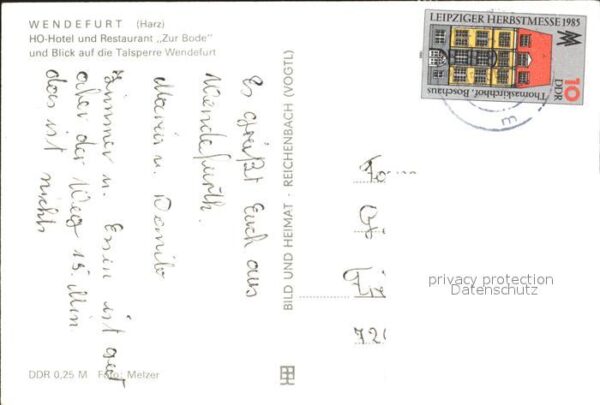 WENDEFURT (Harz)
HO-Hotel und Restaurant „Zur Bode"
und Blick auf die Talsperre Wendefurt
Es grüßt Euch aus
Wendefurth.
Maria u. Danilo
Zimmer u. Essen ist gut
aber der Weg 15 Min
das ist nichts
DDR 0,25 M Foto: Melzer
BILD UND HEIMAT · REICHENBACH (VOGTL)
LEIPZIGER HERBSTMESSE 1985
MM
10
DDR
Thomaskirchhof, Bosehaus
privacy protection
Datenschutz
720